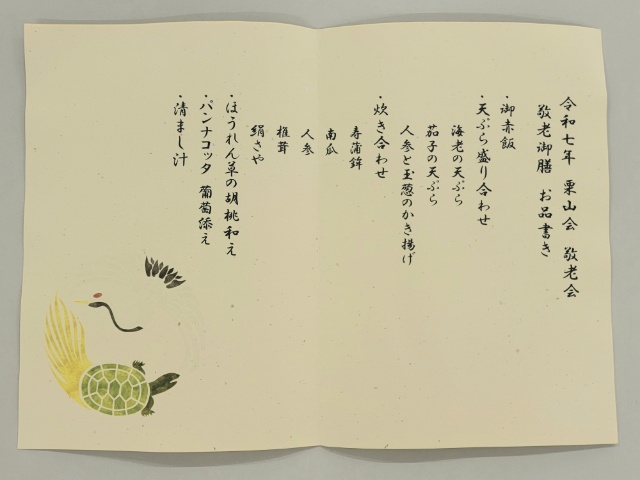 令和七年 栗山会 敬老会
敬老御膳 お品書き
・御赤飯
・天ぷら盛り合わせ
海老の天ぷら
茄子の天ぷら
人参と玉葱のかき揚げ
・炊き合わせ
寿蒲鉾
南瓜
人参
椎茸
絹さや
・ほうれん草の胡桃和え
・パンナコッタ 葡萄添え
・清まし汁